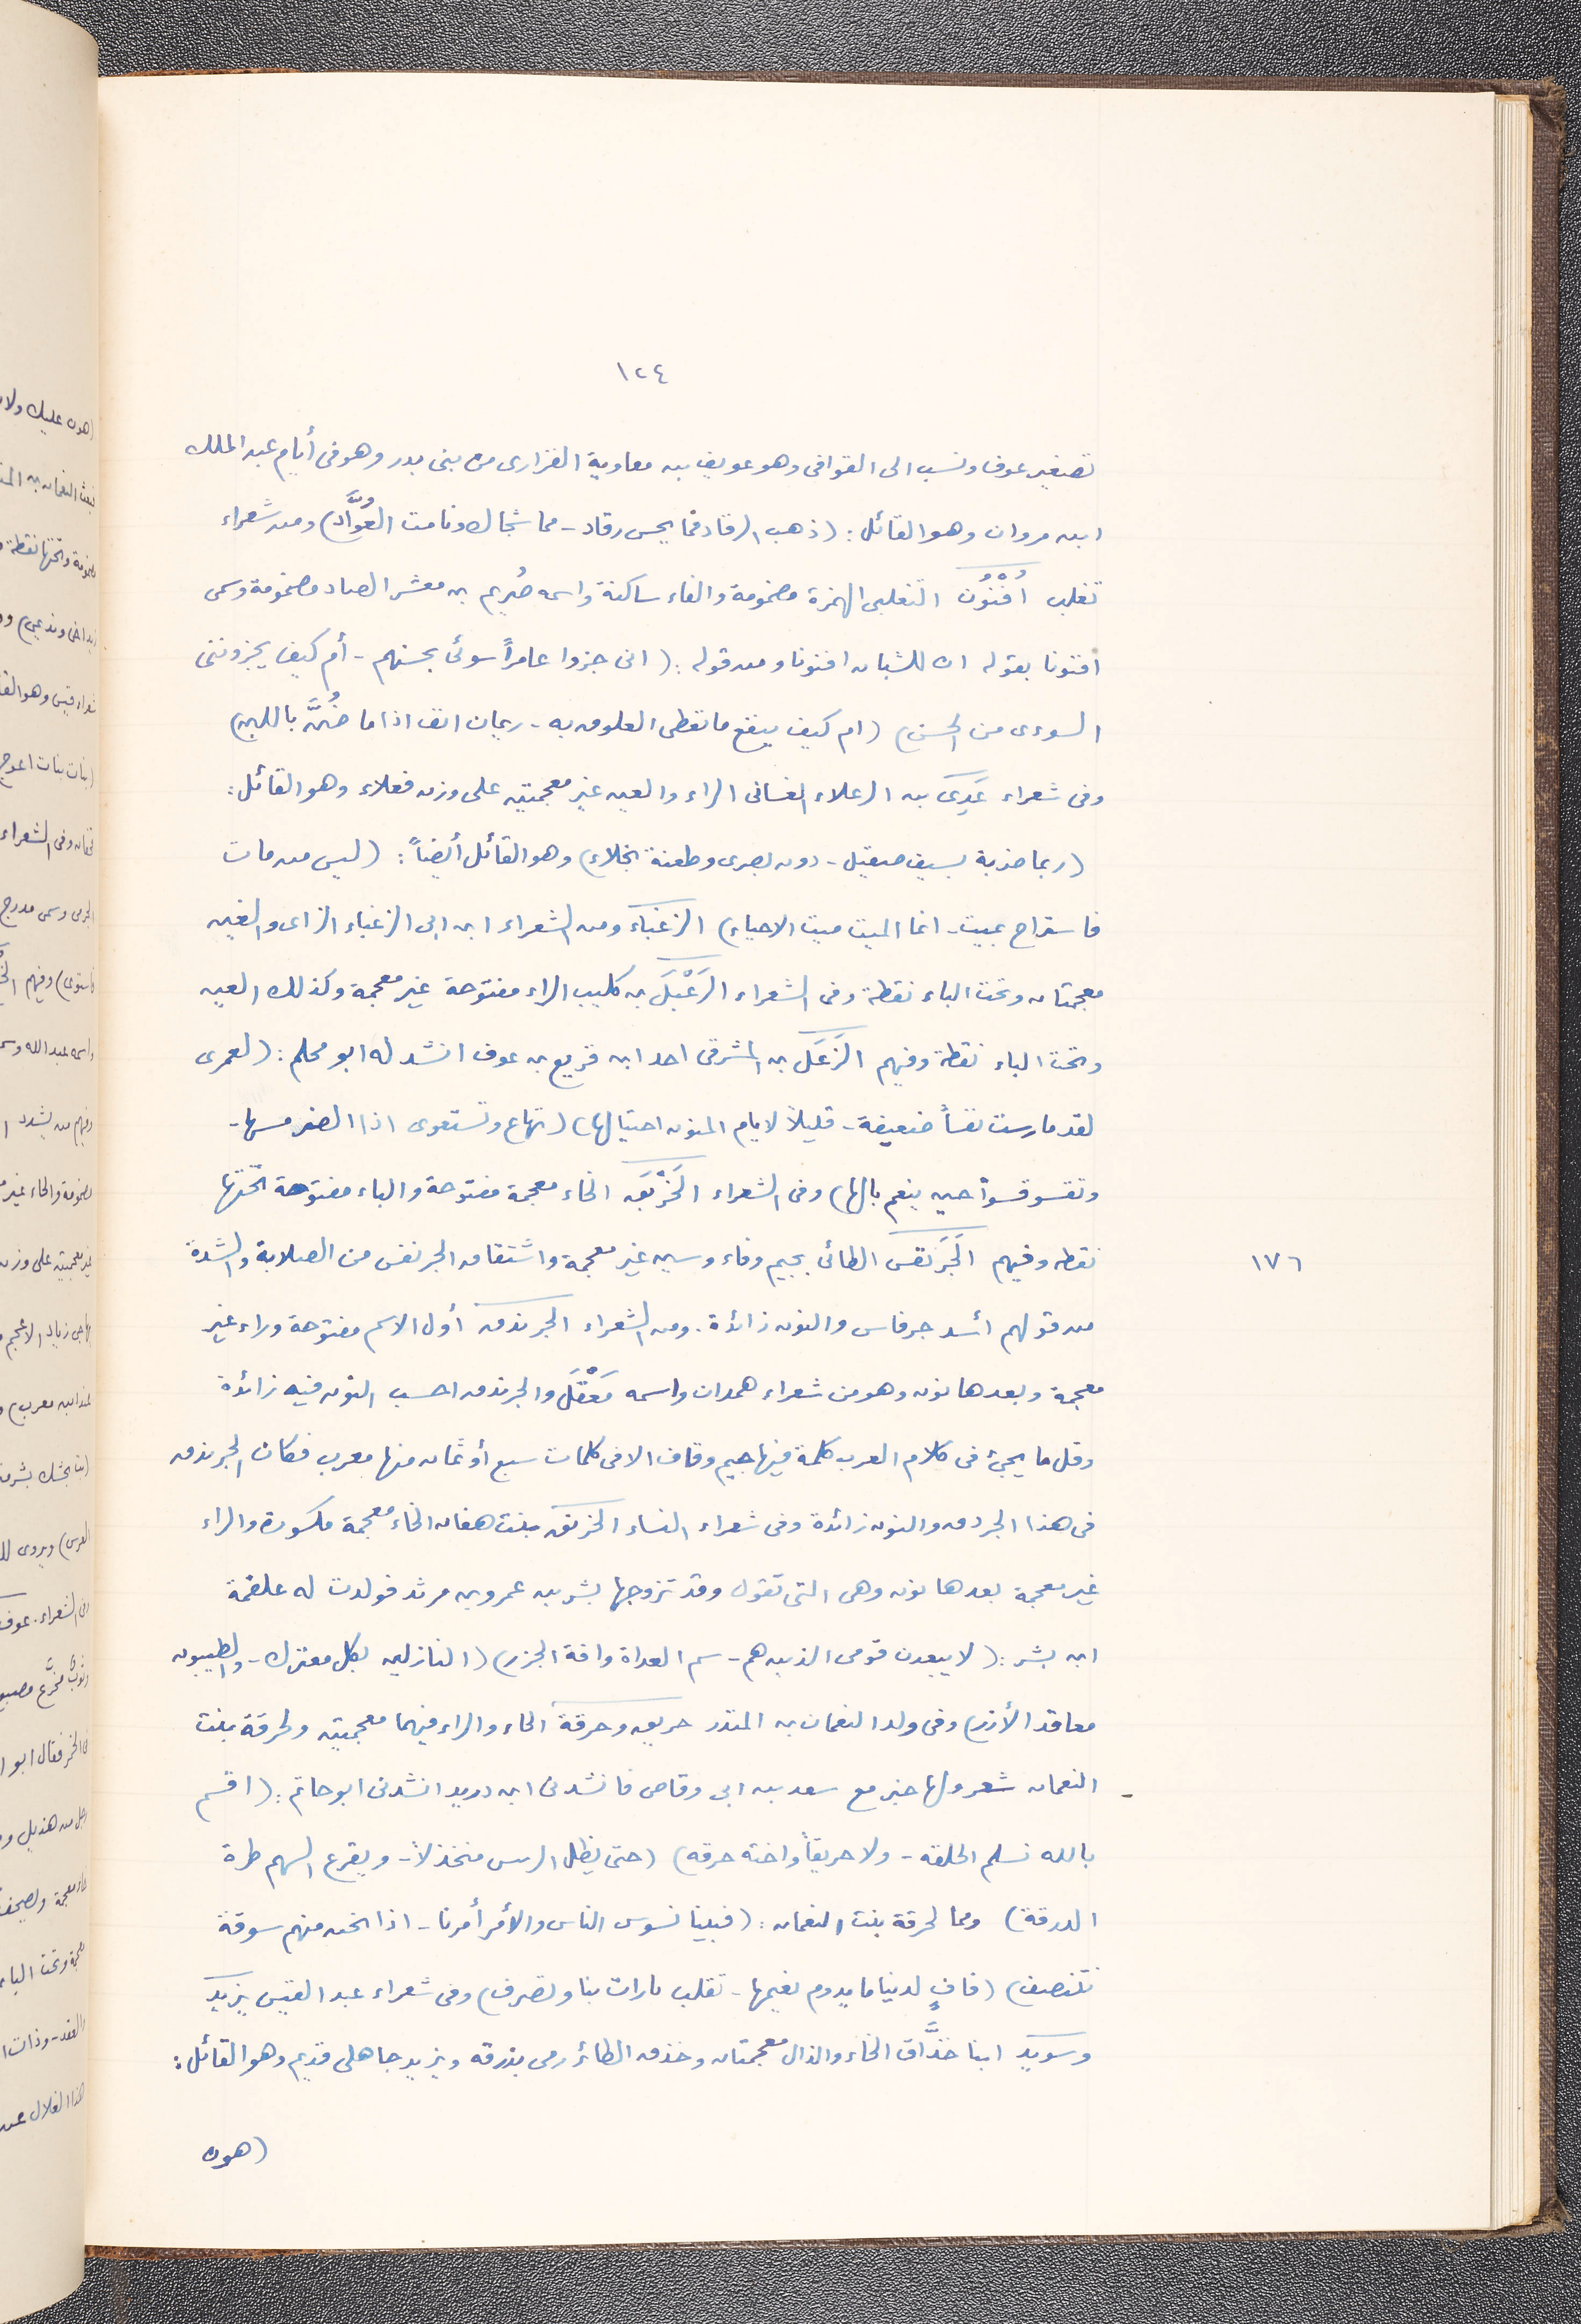 ١٢٤
تصغير عوف ونسب الى القوافى وهو عويف بن معاوية الفزارى من بنى بدر وهو فى أيام عبد الملك
ابن مروان وهو القائل : (ذهب الرقاد فما يحس رقاد - مما شجاك ونامت العُوَّادُ) ومن شعراء
تغلب أُفْنُوُن التغلبى الهمزة مضمومة والفاء ساكنة واسمه صُريم بن معشر الصاد مضمومة وسمى
افنونا بقوله ان للشبان افنونا ومن قوله : (انى جزوا عامراً سوئى بحسنهم - أم كيف يجزوننى
السوءى من الحسن) (ام كيف ينفع ما تعطى العلوق به - ريمان انف اذا ما ضُنَّ باللبن)
وفى شعراء عَدِىّ بن الرعلاء الغسانى الراء والعين غير معجمتين على وزن فعلاء وهو القائل :
(ربما ضربة بسيف صقيل - دون بصرى وطعنة نجلاء) وهو القائل أيضاً : (ليس من مات
فاستراح بميت - انما الميت ميت الاحياء) الزغباء ومن الشعراء ابن ابى الزغباء الزاى والغين
معجمتان وتحت الباء نقطة وفى الشعراء الرَعْبَل بن كليب الراء مفتوحة غير معجمة وكذلك العين
وتحت الباء نقطة وفيهم الزَعَل بن المشرقى احد ابن قريع بن عوف انشد له ابو محلم : (لعمرى
لقد مارست نفساً ضعيفة - قليلاً لايام المنون احتيالها) (تهاع وتستعوى اذا الضر مسها -
وتقسو قسواً حين ينعم بالها) وفى الشعراء الخَرْبَق الخاء معجمة مفتوحة والباء مفتوحة تحتها
نقطه وفيهم الجَرَنفَس الطائى بجيم وفاء وسين غير معجمة واشتقاق الجرنفس من الصلابة والشدة
١٧٦
من قولهم أسد جرفاس والنون زائدة . ومن الشعراء الجرندق أول الاسم مفتوحة وراء غير
معجمة وبعدها نون وهو من شعراء همدان واسمه مَعْقَل والجرندق احسب النون فيه زائدة
وقل ما يجئ فى كلام العرب كلمة فيها جيم وقاف الا فى كلمات سبع أو ثمان منها معرب فكان الجرندق
فى هذا الجردق والنون زائدة وفى شعراء النساء الخرنق بنت هفان الخاء معجمة مكسورة والراء
غير معجمة بعدها نون وهى التى تقول وقد تزوجها بشر بن عمرو بن مرثد فولدت له علقمة
ابن بشر : (لا يبعدن قومى الذين هم - سم العداة وافة الجزر) (النازلين بكل معترك - والطيبون
معاقد الأزر) وفى ولد النعمان بن المنذر حريق وحرقة الحاء والراء فيهما معجمتين ولحرقة بنت
النعمان شعر ولها خبر مع سعد بن ابى وقاص فانشدنى ابن دريد انشدنى ابو حاتم : (اقسم
بالله نسلم الحلقه - ولا حريقاً واخته حرقه) (حتى يظل الرس منخذلاً - ويقرع السهم طرة
الدرقة) ومما لحرقة بنت النعمان : (فبينا نسوس الناس والأمر أمرنا - اذا نحن منهم سوقة
نتنصف) (فافٍ لدنيا ما يدوم نعيمها - تقلب تارات بنا وتصرف) وفى شعراء عبد القيس يزيد
وسويد ابنا خذَّاق الخاء والذال معجمتان وخذق الطائر رمى بذرقه ويزيد جاهلى قديم وهو القائل :
(هون